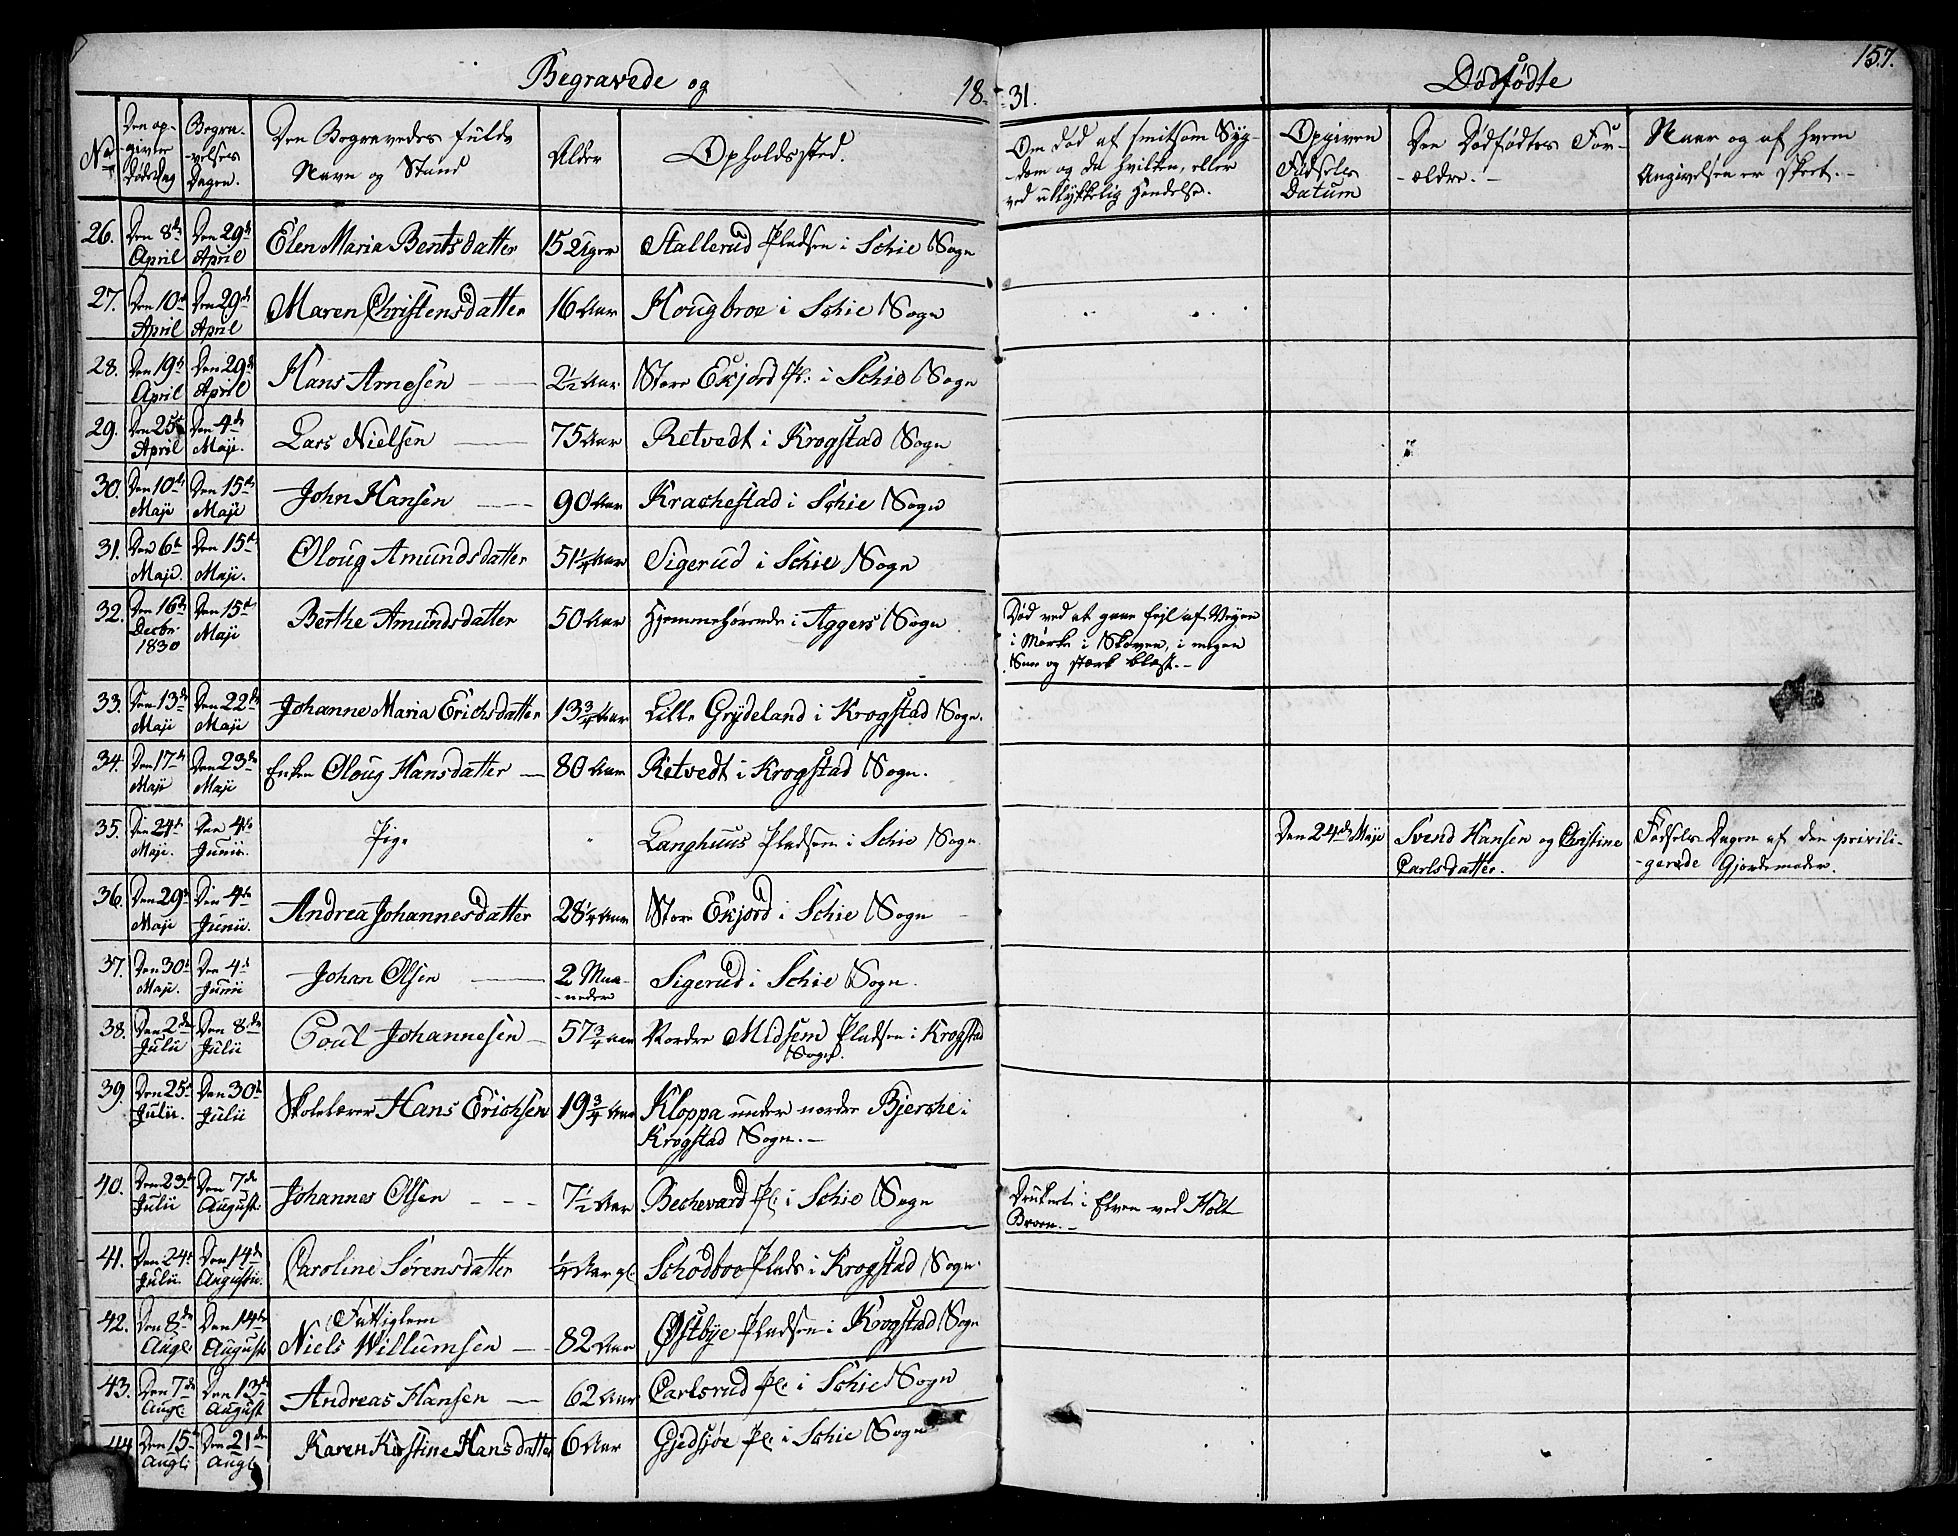 157.
Begravede og 18-
-31. Dødfødte
No
Den op-
-givne
Dødsdag
Begra-
-velses
Dagen.
Den Begravedes fulde
Navn og Stand
Alder
Opholdssted.
Om død af smitsom Syg-
-dom og da hvilken, eller
ved ulykkelig Hændelse.
Opgiven
Fødsels
Datum
Den Dødfødtes For-
-ældre.-
Naar og af hvem
Angivelsen er skeet.-
26. Den 8de April Den 29de April Elen Maria Bentsdatter 15 Uger Stallerud Pladsen i Schie Sogn
27. Den 10de April Den 29de April Maren Christensdatter 16 Aar Hougbroe i Schie Sogn
28. Den 19de April Den 29de April Hans Arnesen 2½ Aar Store Ekjord Pl: i Schie Sogn
29. Den 25de April Den 4de Maji. Lars Nielsen 75 Aar Retvedt i Krogstad Sogn
30. Den 10de Maji Den 15de Maji John Hansen 90 Aar Krachestad i Schie Sogn
31. Den 6te Maji. Den 15de Maji. Oloug Amundsdatter 51¼ Aar Sigerud i Schie Sogn
32. Den 16de Decbr 1830 Den 15de Maji Berthe Amundsdatter 50 Aar Hjemmehørende i Aggers Sogn
Død ved at gaae fejl af Vejen
i Mørke i Skoven, i megen
Snee og stærk blæst.-
33. Den 13de Maji Den 22de Maji Johanne Maria Erichsdatter 13¾ Aar Lille Grydeland i Krogstad Sogn.
34. Den 17de Maji Den 23de Maji Enken Oloug Hansdatter 80 Aar Retvedt i Krogstad Sogn.
35. Den 24de Maji. Den 4de Junii. Pige " Langhuus Pladsen i Schie Sogn. Den 24de Maji Svend Hansen og Christine Fødsels Dagen af den privili-
Carlsdatter. -gerede Gjordemoder.
36. Den 29de Maji Den 4de Junii. Andrea Johannesdatter 28¼ Aar Store Ekjord i Schie Sogn
37. Den 30te Maji. Den 4de Junii Johan Olsen 2 Maa-
-neder Sigerud i Schie Sogn.
38. Den 2den Julii Den 8de Julii Poul Johannesen 57¾ Aar Nordre Midsem Pladsen i Krogstad
Sogn.
39. Den 25de Julii. Den 30te Julii Skolelærer Hans Erichsen 19¾ Aar Kloppa under nordre Bjerche i
Krogstad Sogn.-
40. Den 23de Julii Den 7de August Johannes Olsen 7½ Aar Bechevard Pl: i Schie Sogn
Druknet i Elven ved Holt
Broen.-
41. Den 24de Julii Den 14de Augusti. Caroline Sørensdatter ¼ Aar gl: Schodboe Plads i Krogstad Sogn.
42. Den 8de Augl: Den 14de August Fattiglem
Niels Willumsen 82 Aar Østbye Pladsen i Krogstad Sogn
43. Den 7de Augl: Den 13de August Andreas Hansen 62 Aar Carlsrud Pl: i Schie Sogn
44 Den 15de Augl: Den 21de Augl: Karen Kirstine Hansdatter 6 Aar Gjedsjøe Pl: i Schie Sogn